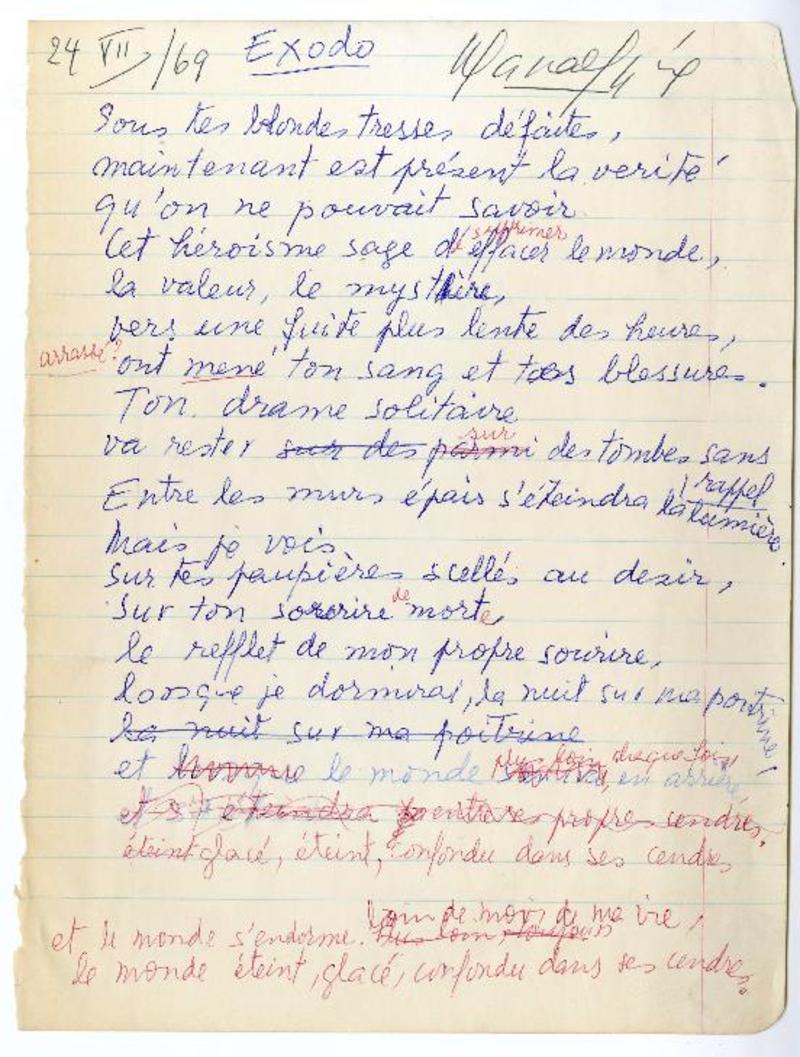 24 VII /69 Exodo
Sous tes blondes tresses défaites,
maintenant est présent la verité
qu'on ne pouvait savoir.
supprimer
Cet héroïsme sage d'effacer le monde,
la valeur, le mystère,
vers une fuite plus lente des heures,
arrassé?
ont mené ton sang et tes blessures.
Ton drame solitaire
sur
va rester sur des parmi des tombes sans
rappel
Entre les murs épais s'éteindra la lumière.
Mais je vois
sur tes paupières scellés au desir,
de
sur ton sourire morte,
le refflet de mon propre sourire,
lorsque je dormirai, la nuit sur ma poitrine,
la nuit sur ma poitrine
plus loin chaque fois,
et le monde en arrière
et s'éteindra entre ses propres cendres,
éteint glacé, éteint, confondu dans ses cendres
loin de mois de ma vie,
et le monde s'endorme. plus loin, toujours
le monde éteint, glacé, confondu dans ses cendres.